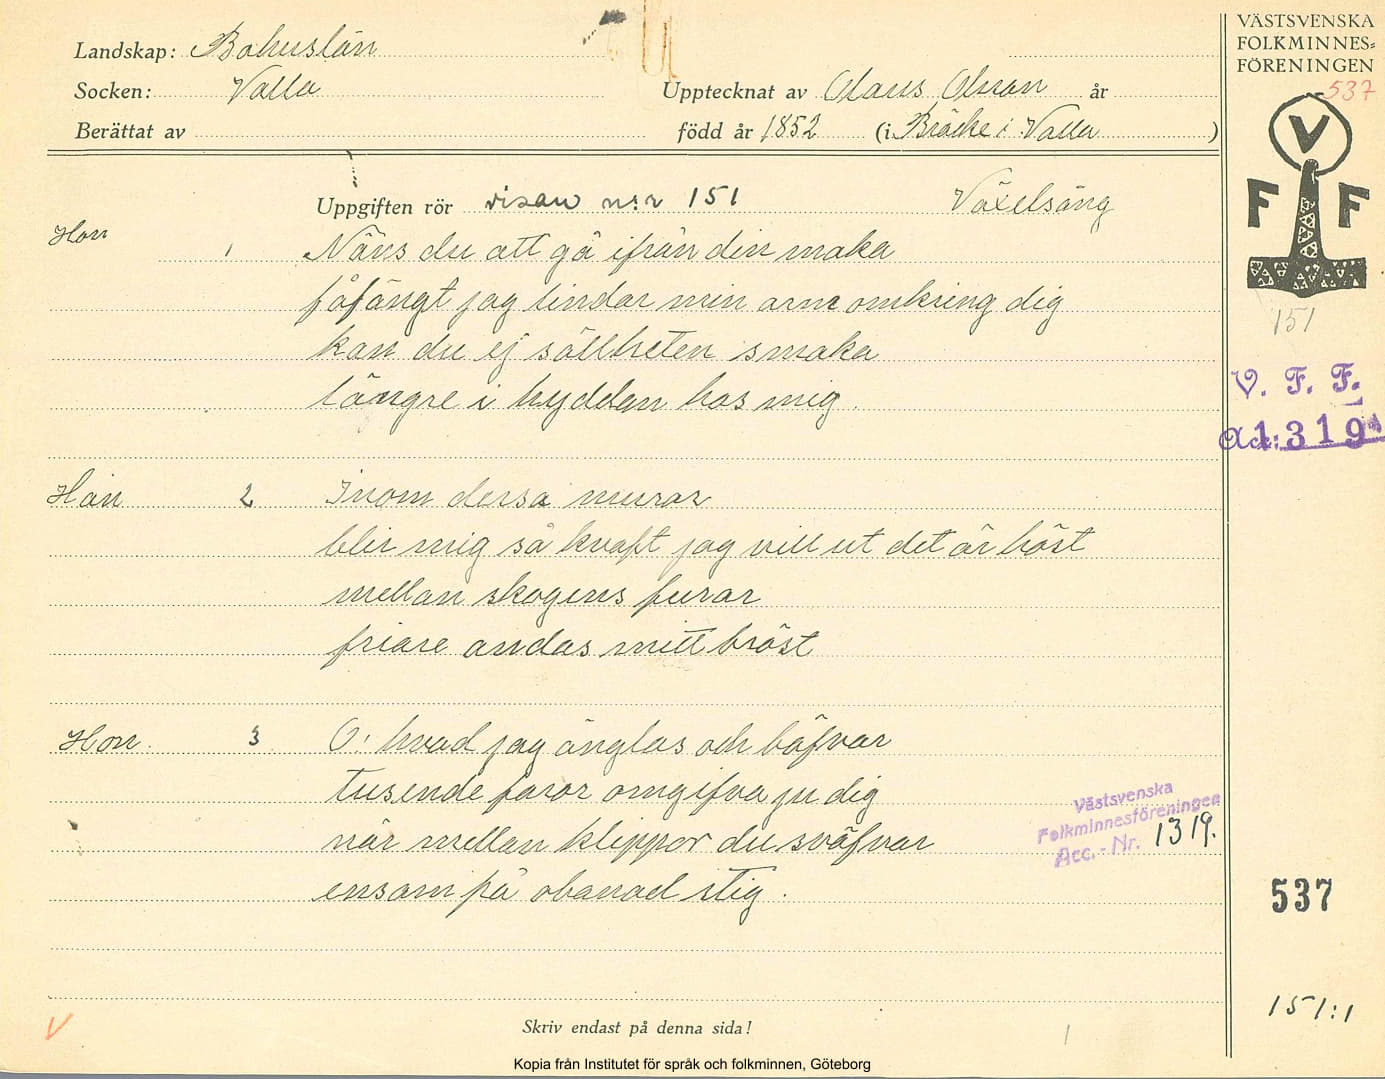 Landskap: Bohuslän
Socken: Valla
Upptecknat av Olaus Olsson år
Berättat av
född år 1852 (i Bräcke i Valla )
VÄSTSVENSKA
FOLKMINNES=
FÖRENINGEN
537
V
F F
151
V. F. F.
Acc: 1319
Uppgiften rör visan n:r 151 Växelsång
Hon 1 Näns du att gå ifrån din maka
fåfängt jag lindar min arm omkring dig
kan du ej sällheten smaka
längre i hyddan hos mig.
Han 2 Inom dessa murar
blir mig så kvaft jag vill ut det är höst
mellan skogens furar
friare andas mitt bröst
Hon. 3 O! hvad jag änglas och bäfvar
tusende faror omgifva ju dig
när mellan klippor du sväfvar
ensam på obanad stig.
Västsvenska
Folkminnesföreningen
Acc.-Nr. 1319.
537
151:1
Skriv endast på denna sida!
1
Kopia från Institutet för språk och folkminnen, Göteborg